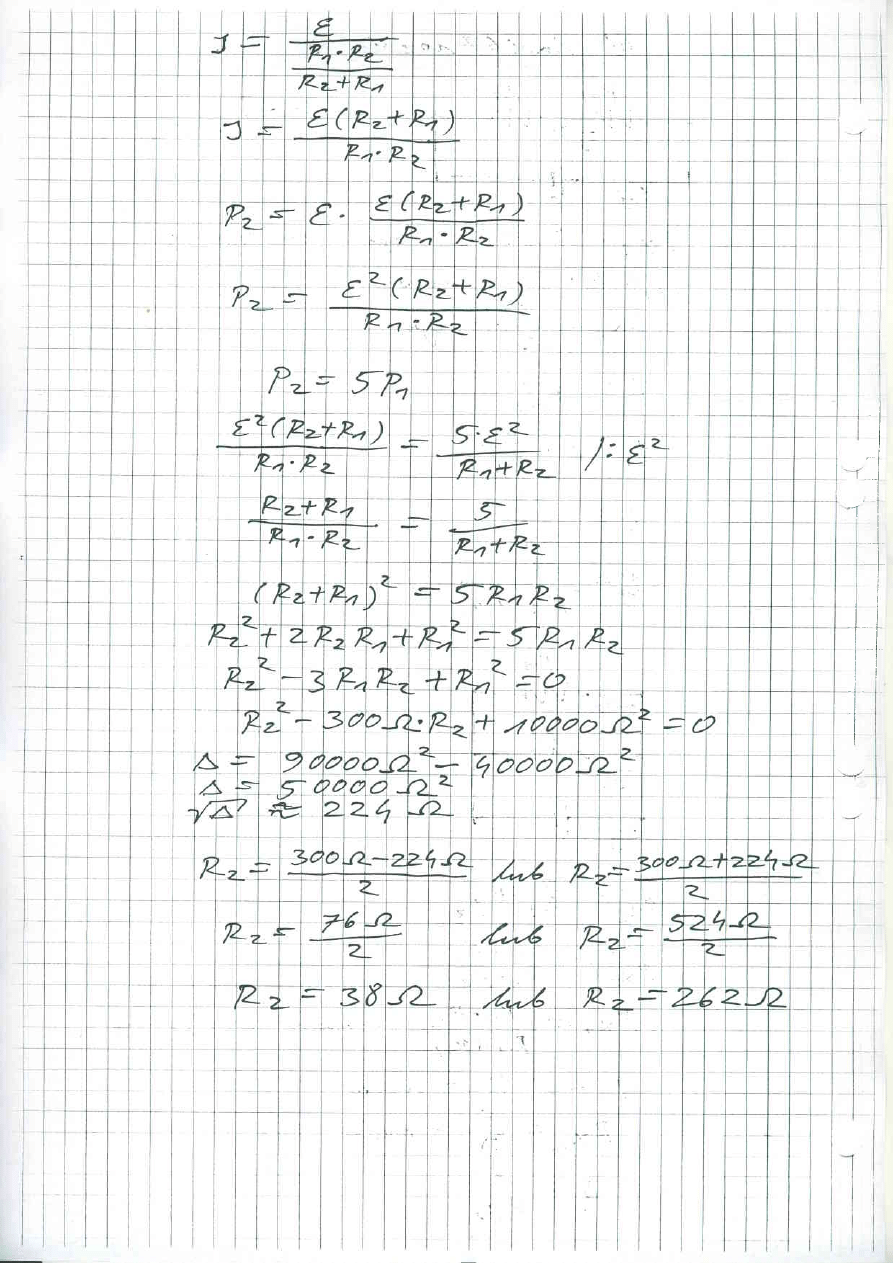 J = ε / (R₁·R₂ / (R₂+R₁))
J = ε(R₂+R₁) / (R₁·R₂)
P₂ = ε · ε(R₂+R₁) / (R₁·R₂)
P₂ = ε²(R₂+R₁) / (R₁·R₂)
P₂ = 5P₁
ε²(R₂+R₁) / (R₁·R₂) = 5·ε² / (R₁+R₂) /:ε²
(R₂+R₁) / (R₁·R₂) = 5 / (R₁+R₂)
(R₂+R₁)² = 5R₁R₂
R₂² + 2R₂R₁ + R₁² = 5R₁R₂
R₂² − 3R₁R₂ + R₁² = 0
R₂² − 300Ω·R₂ + 10000Ω² = 0
Δ = 90000Ω² − 40000Ω²
Δ = 50000Ω²
√Δ ≈ 224Ω
R₂ = (300Ω−224Ω) / 2 lub R₂ = (300Ω+224Ω) / 2
R₂ = 76Ω / 2 lub R₂ = 524Ω / 2
R₂ = 38Ω lub R₂ = 262Ω